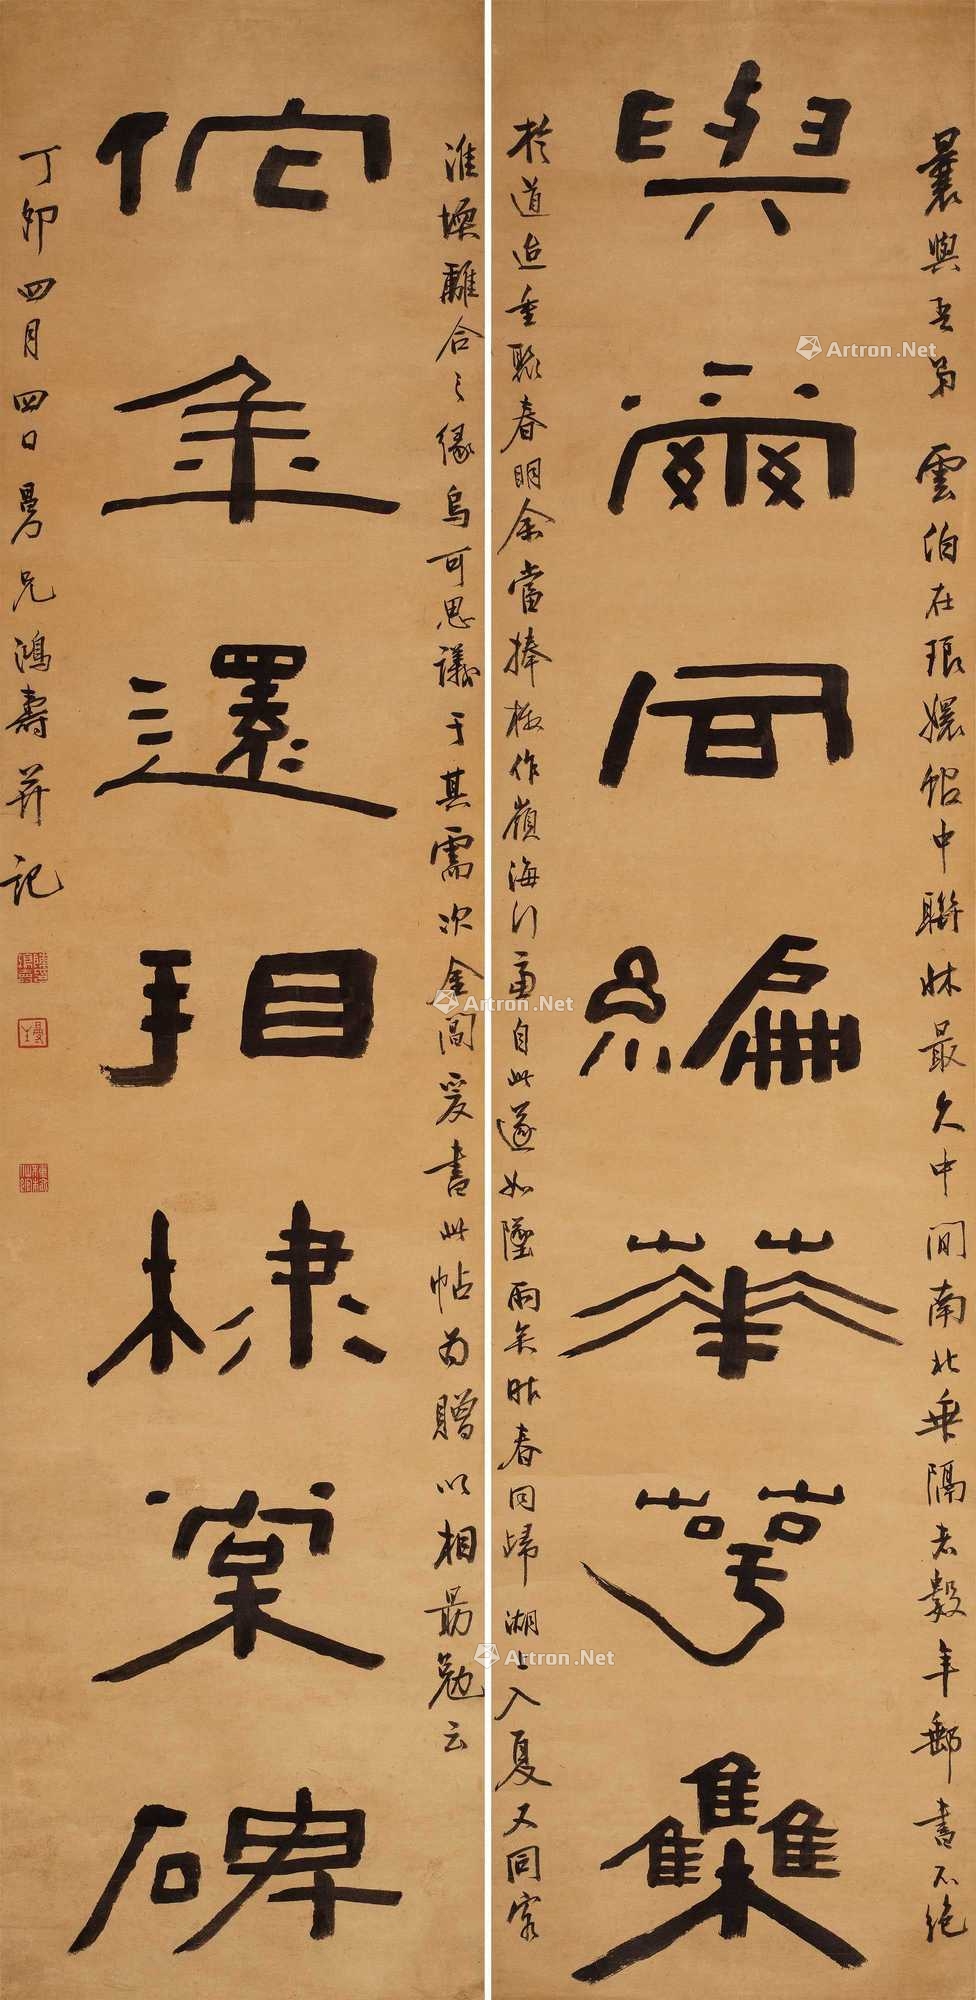 與爾同編華萼集
佗年還相棣棠碑
曩與吾弟雲伯在琅嬛館中聯牀最久中間南北乖隔者數年郵書不絕
於道迨重聚春明余當捧檄作嶺海行 自此遂如墜雨矣昨春同歸湖上入夏又同客
淮堧離合之緣烏可思議于其需次金閶爰書此帖為贈以相勗勉云
丁卯四月四日曼兄鴻壽并記
Artron.Net
Artron.Net
Artron.Net
Artron.Net